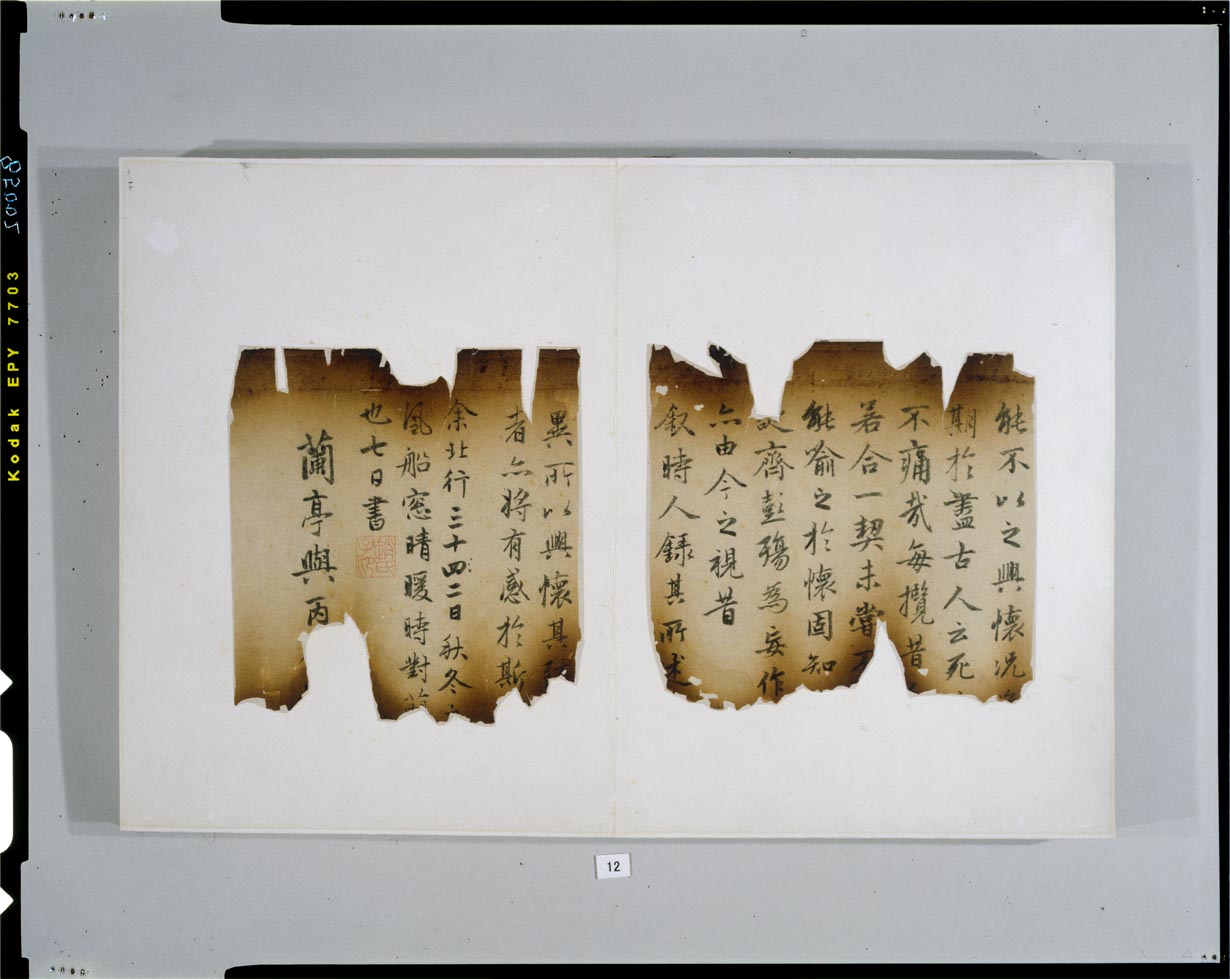 能不以之興懷況
期於盡古人云死
不痛哉每攬昔
若合一契未嘗不
能喻之於懷固知
故齊彭殤為妄作
亦由今之視昔
叙時人録其所述
異所以興懷其致
者亦将有感於斯
余北行三十四二日秋冬
風船窓晴暖時對
也七日書
趙氏子昂
蘭亭與丙
12
Kodak EPY 7703